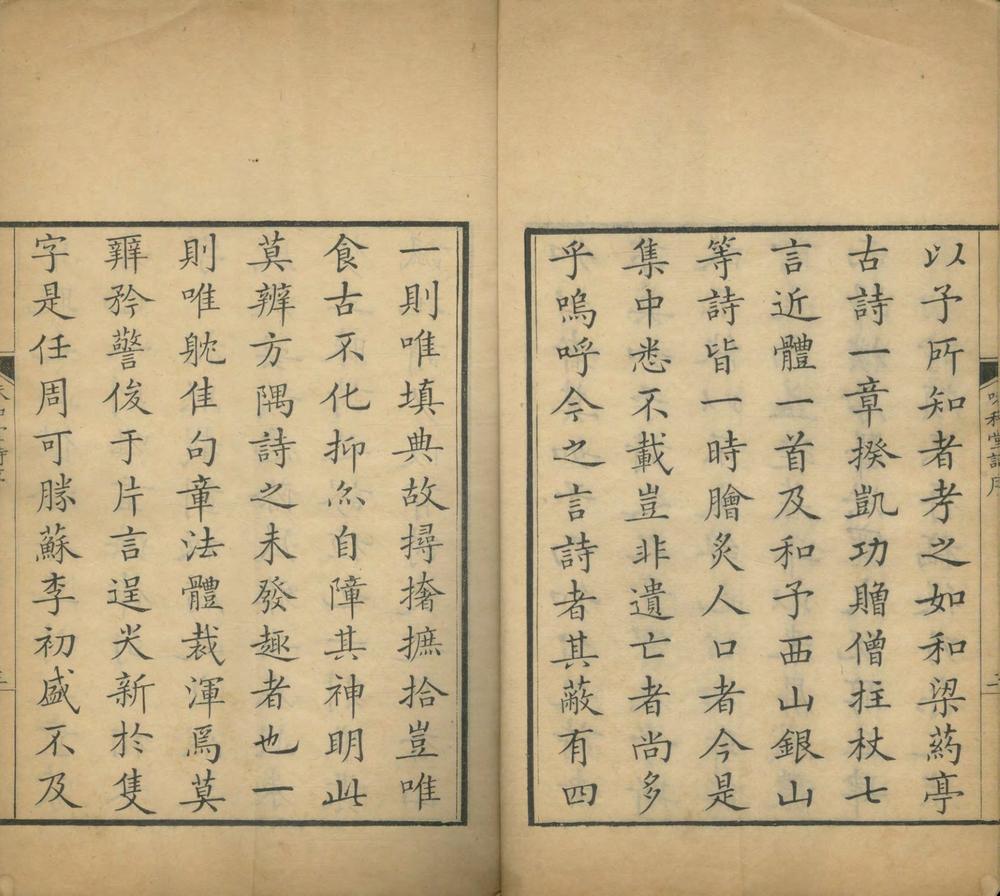 以予所知者考之如和梁葯亭
古詩一章揆凱功贈僧拄杖七
言近體一首及和予西山銀山
等詩皆一時膾炙人口者今是
集中悉不載豈非遺亡者尚多
乎嗚呼今之言詩者其蔽有四
一則唯填典故撏撦摭拾豈唯
食古不化抑亦自障其神明此
莫辨方隅詩之未發趣者也一
則唯躭佳句章法體裁渾焉莫
辨矜警俊于片言逞尖新於隻
字是任周可勝蘇李初盛不及